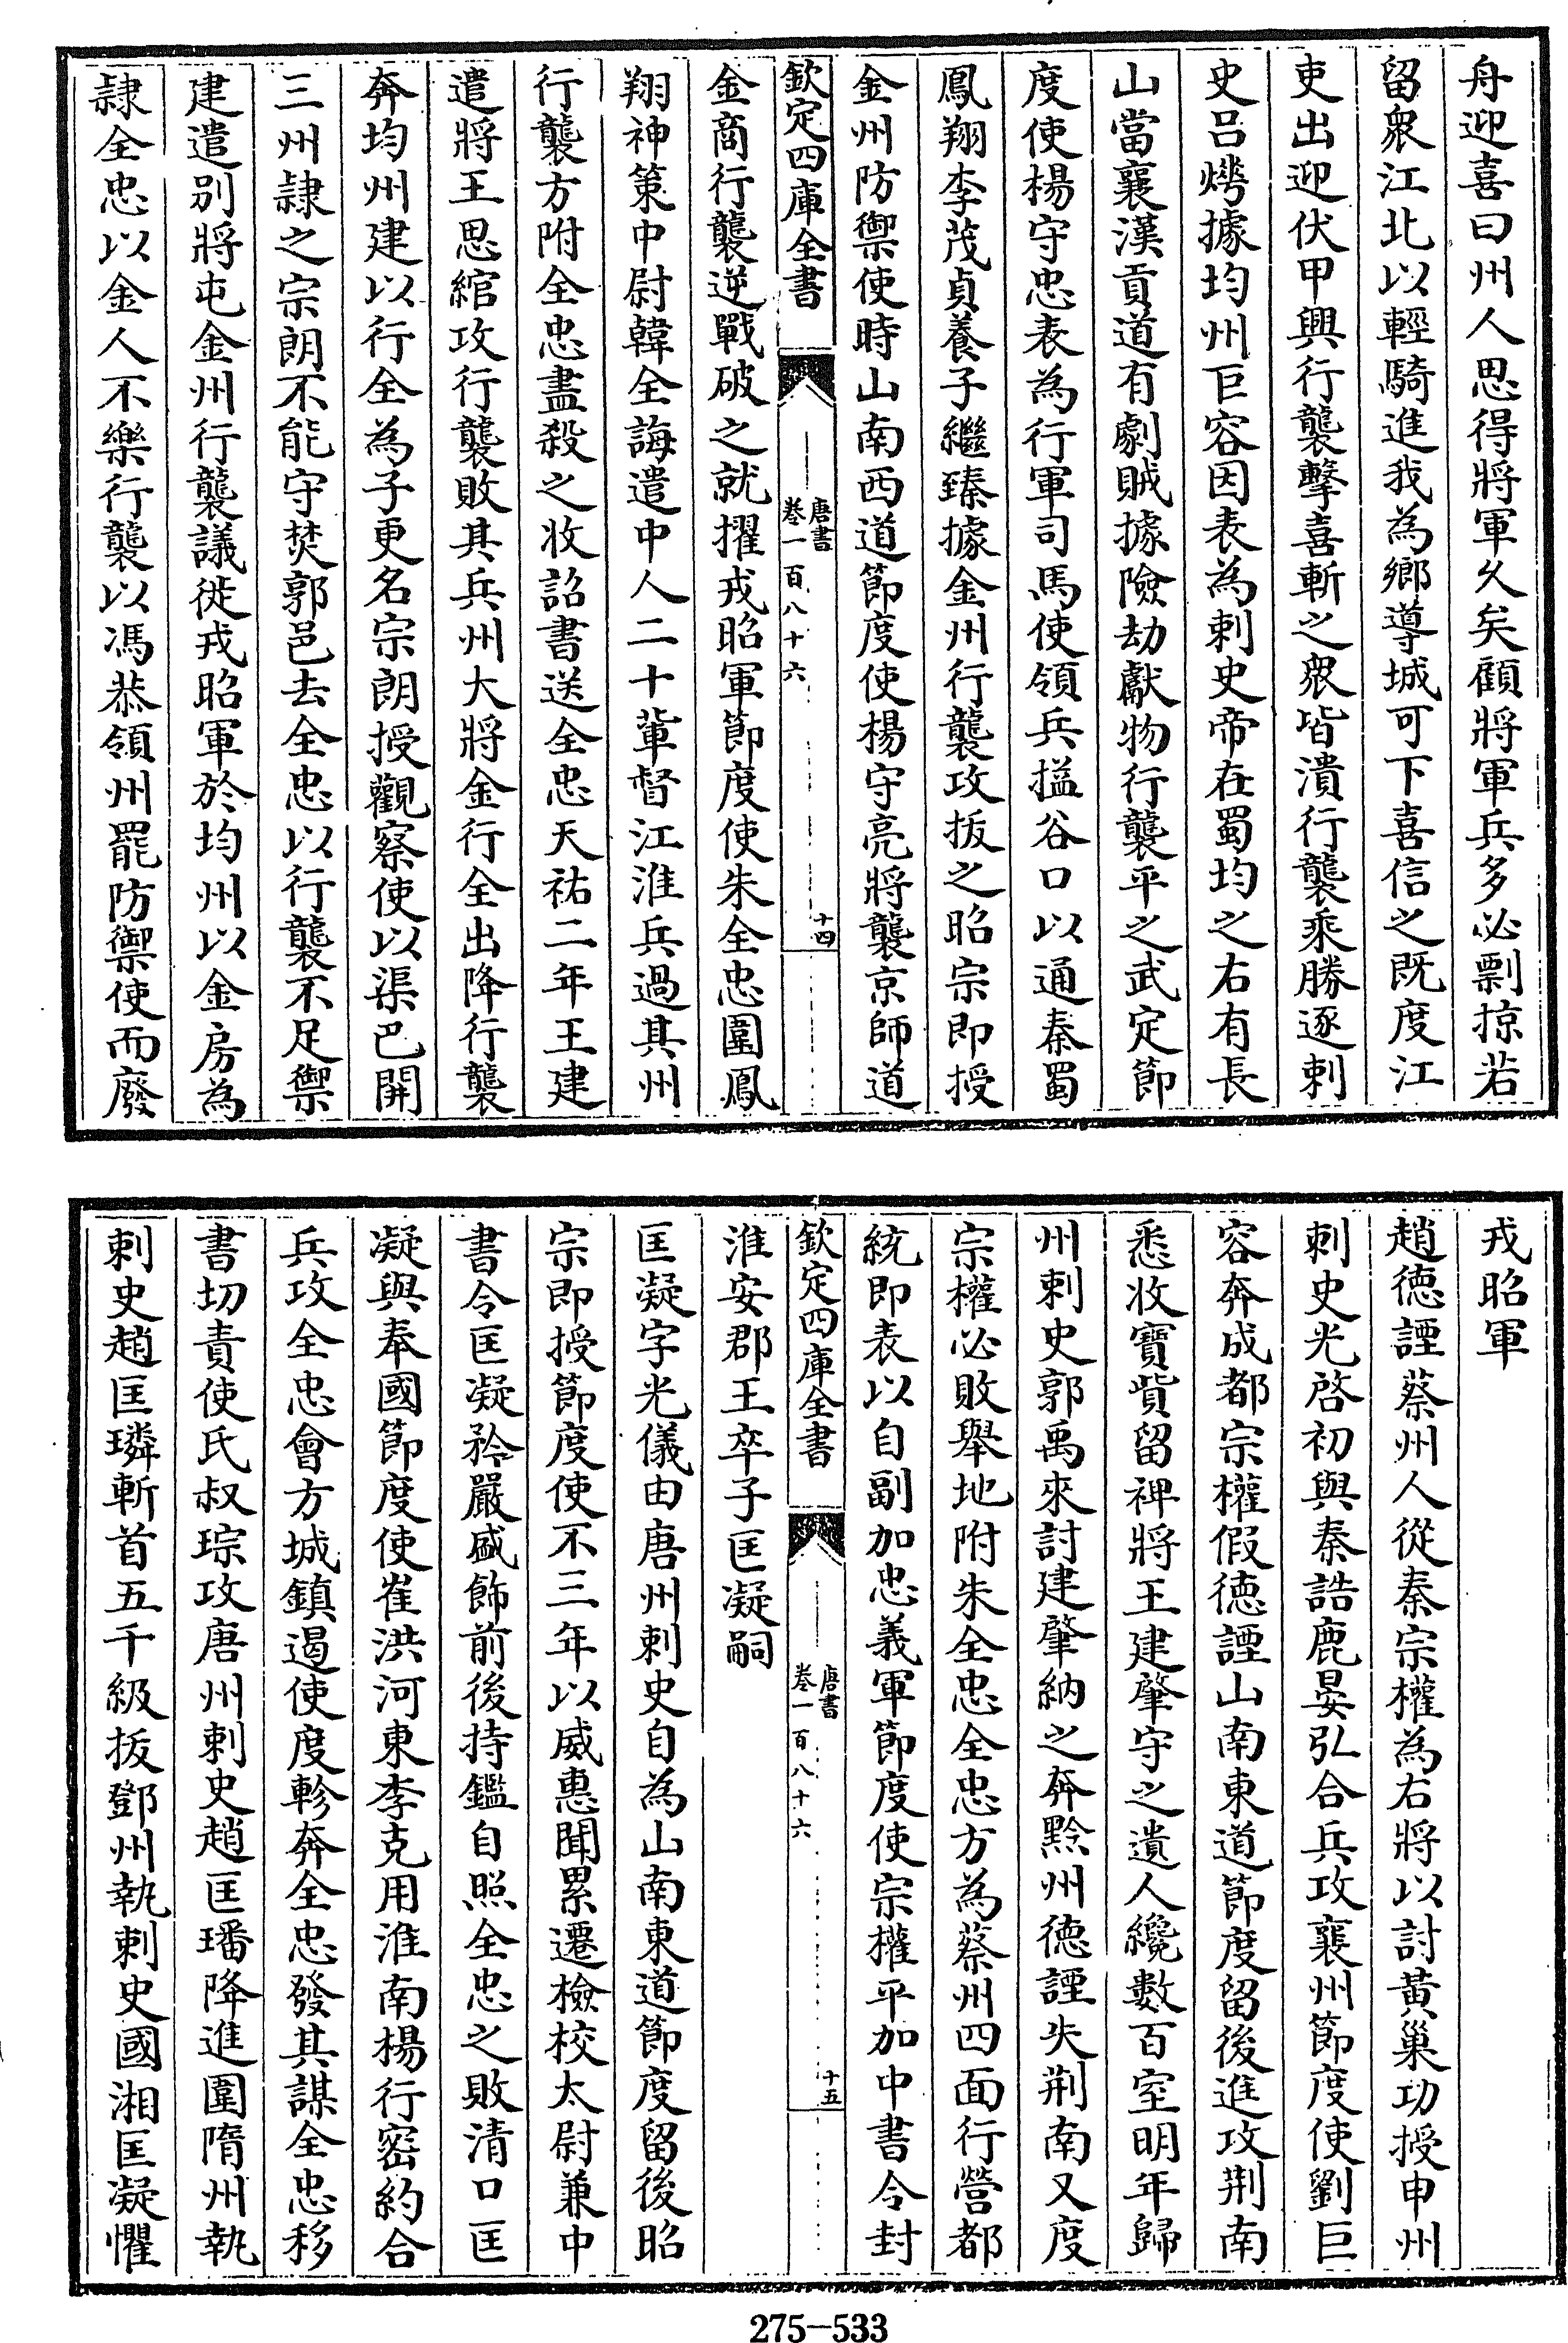 舟迎喜曰州人思得將軍久矣顧將軍兵多必剽掠若
留衆江北以輕騎進我為鄉導城可下喜信之既度江
吏出迎伏甲興行襲擊喜斬之衆皆潰行襲乘勝逐刺
史呂燁據均州巨容因表為刺史帝在蜀均之右有長
山當襄漢貢道有劇賊據險劫獻物行襲平之武定節
度使楊守忠表為行軍司馬使領兵搤谷口以通秦蜀
鳳翔李茂貞養子繼臻據金州行襲攻拔之昭宗即授
金州防禦使時山南西道節度使楊守亮將襲京師道
欽定四庫全書
唐書
卷一百八十六
十四
金商行襲逆戰破之就擢戎昭軍節度使朱全忠圍鳳
翔神策中尉韓全誨遣中人二十輩督江淮兵過其州
行襲方附全忠盡殺之收詔書送全忠天祐二年王建
遣將王思綰攻行襲敗其兵州大將金行全出降行襲
奔均州建以行全為子更名宗朗授觀察使以渠巴開
三州隸之宗朗不能守焚郭邑去全忠以行襲不足禦
建遣别將屯金州行襲議徙戎昭軍於均州以金房為
隸全忠以金人不樂行襲以馮恭領州罷防禦使而廢
戎昭軍
趙徳諲蔡州人從秦宗權為右將以討黃巢功授申州
刺史光啓初與秦誥鹿晏弘合兵攻襄州節度使劉巨
容奔成都宗權假徳諲山南東道節度留後進攻荆南
悉收寶貲留裨將王建肇守之遺人纔數百室明年歸
州刺史郭禹來討建肇納之奔黔州徳諲失荆南又度
宗權必敗舉地附朱全忠全忠方為蔡州四面行營都
統即表以自副加忠義軍節度使宗權平加中書令封
欽定四庫全書
唐書
卷一百八十六
十五
淮安郡王卒子匡凝嗣
匡凝字光儀由唐州刺史自為山南東道節度留後昭
宗即授節度使不三年以威惠聞累遷檢校太尉兼中
書令匡凝矜嚴盛飾前後持鑑自照全忠之敗清口匡
凝與奉國節度使崔洪河東李克用淮南楊行密約合
兵攻全忠會方城鎮遏使度軫奔全忠發其謀全忠移
書切責使氏叔琮攻唐州刺史趙匡璠降進圍隋州執
刺史趙匡璘斬首五千級拔鄧州執刺史國湘匡凝懼
275-533